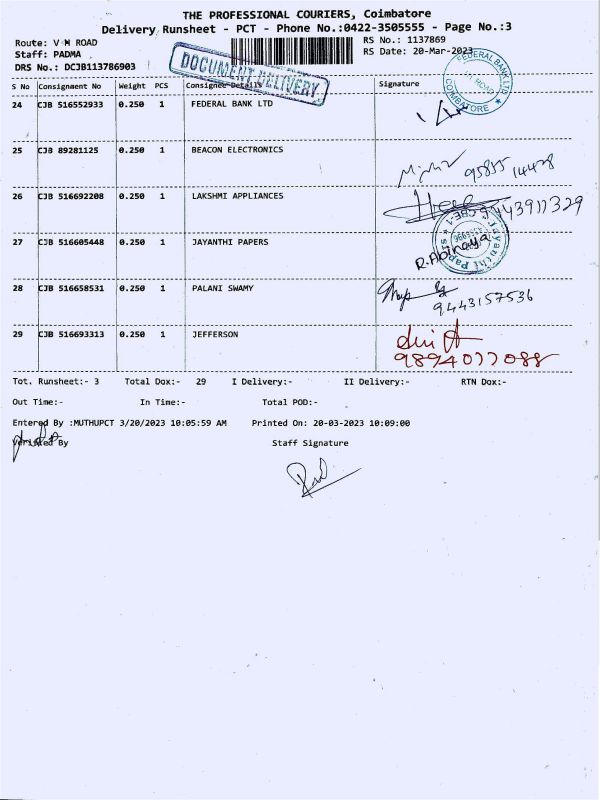 THE PROFESSIONAL COURIERS, Coimbatore
Delivery Runsheet - PCT - Phone No.:0422-3505555 - Page No.:3
Route: V M ROAD
Staff: PADMA
DRS No.: DCJB113786903
RS No.: 1137869
RS Date: 20-Mar-2023
DOCUMENT DELIVERY
FEDERAL BANK LTD
COIMBATORE
S No Consignment No Weight PCS Consignee Details Signature
24 CJB 516552933 0.250 1 FEDERAL BANK LTD
25 CJB 89281125 0.250 1 BEACON ELECTRONICS
95855 14428
26 CJB 516692208 0.250 1 LAKSHMI APPLIANCES
9443911329
27 CJB 516605448 0.250 1 JAYANTHI PAPERS
R.Abinaya
28 CJB 516658531 0.250 1 PALANI SWAMY
9443157536
29 CJB 516693313 0.250 1 JEFFERSON
9894077088
Tot. Runsheet:- 3 Total Dox:- 29 I Delivery:- II Delivery:- RTN Dox:-
Out Time:- In Time:- Total POD:-
Entered By :MUTHUPCT 3/20/2023 10:05:59 AM Printed On: 20-03-2023 10:09:00
Verified By Staff Signature